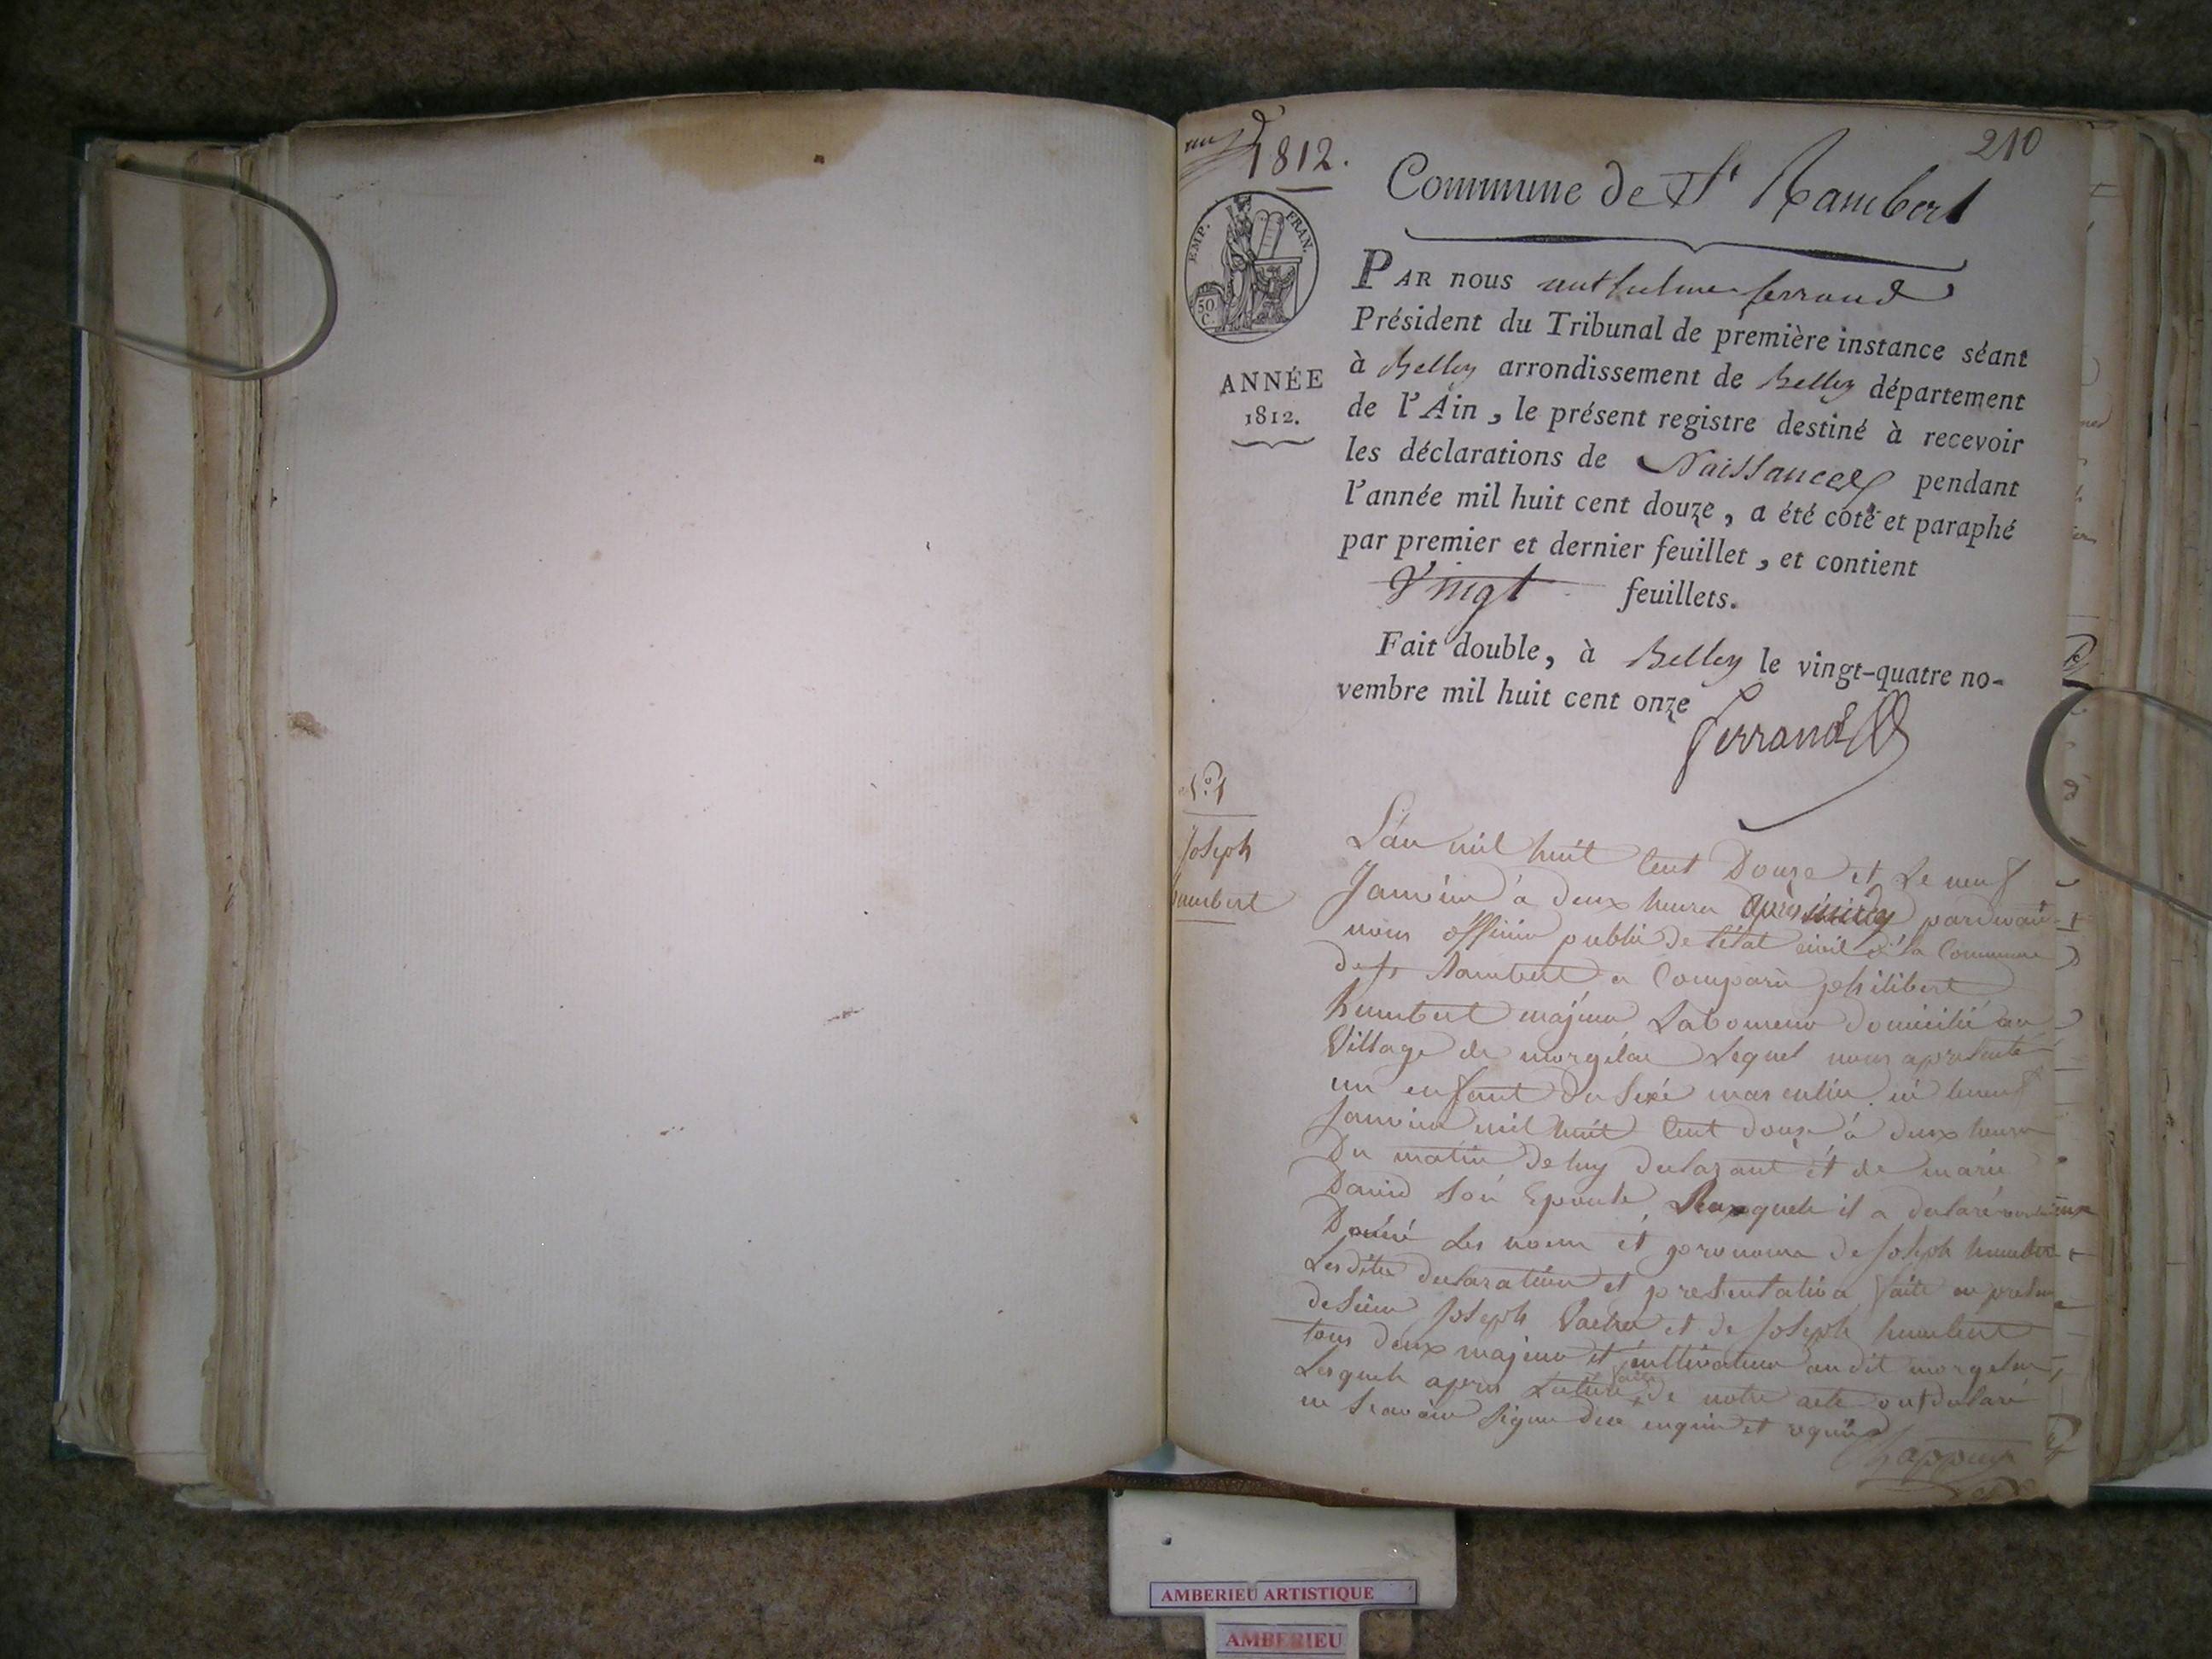 1812.
210
Commune de St Rambert
EMP. FRAN.
50
C.
ANNÉE
1812.
PAR nous anthelme ferrand
Président du Tribunal de première instance séant
à Belley arrondissement de Belley département
de l'Ain, le présent registre destiné à recevoir
les déclarations de Naissances pendant
l'année mil huit cent douze, a été coté et paraphé
par premier et dernier feuillet, et contient
Vingt feuillets.
Fait double, à Belley le vingt-quatre no-
vembre mil huit cent onze
ferrand
N.º 1
Joseph
humbert
L'an mil huit Cent Douze et Le neuf
Janvier à deux heures après midy pardevant
nous officier public de l'état civil de la Commune
de st Rambert a Comparu philibert
humbert majeur Laboureur domicilié au
Village de morgelas Lequel nous a presenté
un enfant du sexe masculin né le neuf
Janvier mil huit Cent douze à deux heures
Du matin de luy declarant et de marie
David son Epouse, auquel il a declaré
Donné Les noms et prenoms de Joseph humbert
Lesdites declaration et presentation faite en presence
de Joseph et de Joseph humbert
tous deux majeurs et cultivateurs audit morgelas
Lesquels apres Lecture faite de notre acte ont declaré
ne scavoir signer de ce enquis et requis
Chappuy
AMBERIEU ARTISTIQUE
AMBERIEU